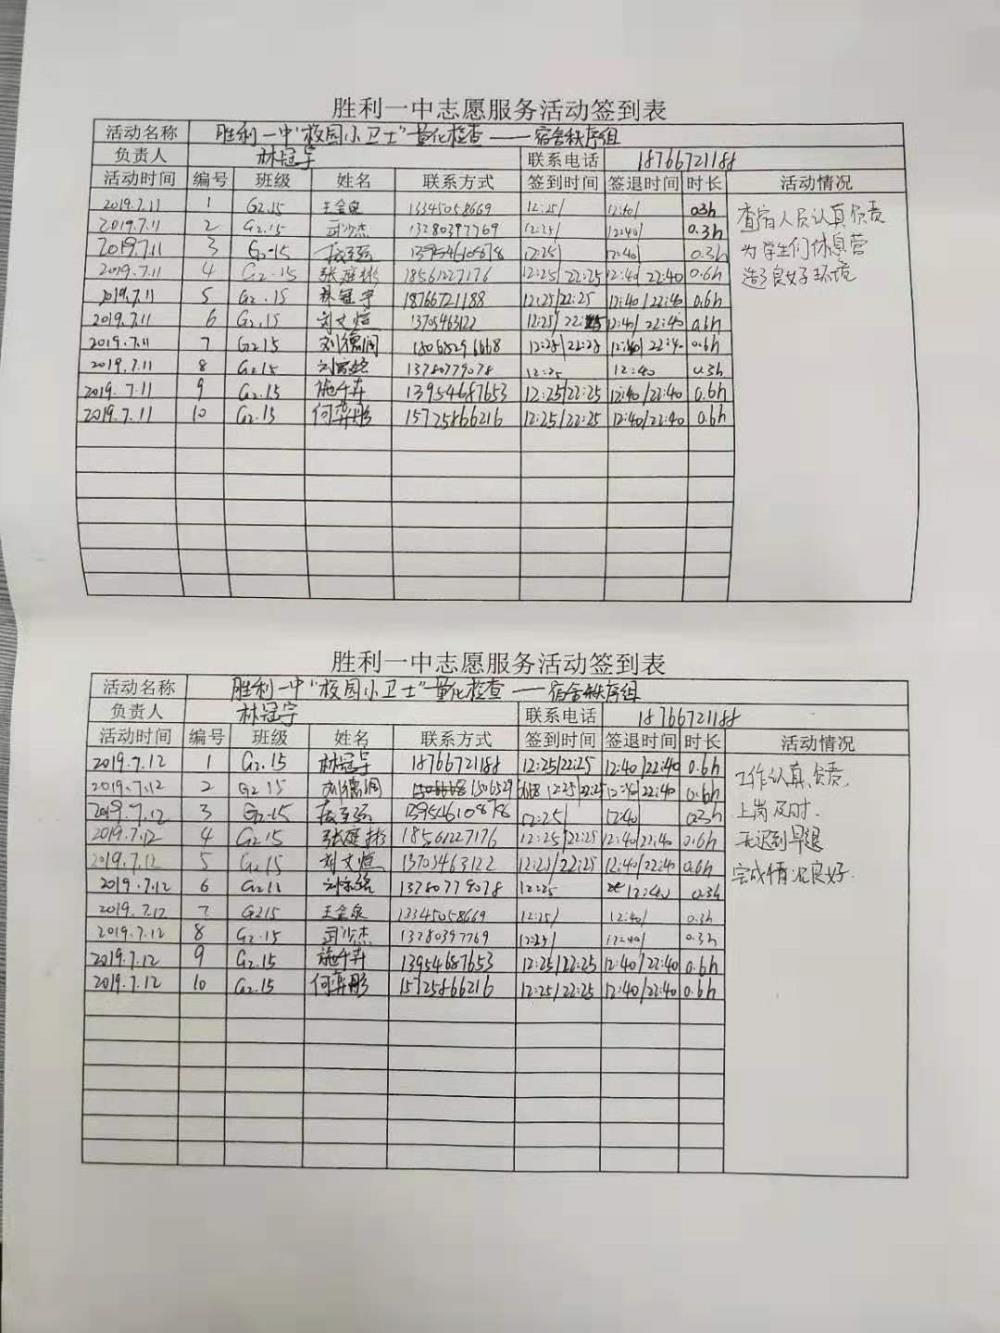 胜利一中志愿服务活动签到表
活动名称 胜利一中"校园小卫士"量化检查——宿舍秩序组
负责人 林冠宇 联系电话 18766721188
活动时间 编号 班级 姓名 联系方式 签到时间 签退时间 时长 活动情况
2019.7.11 1 G2.15 王金泉 13345058669 12:25/ 12:40/ 0.3h 查宿人员认真负责
2019.7.11 2 G2.15 武少杰 13280397769 12:25/ 12:40/ 0.3h 为学生们休息营
2019.7.11 3 G2-15 13954610878 12:25/ 12:40/ 0.3h 造了良好环境
2019.7.11 4 G2-15 张庭彬 18561227176 12:25/22:25 12:40/22:40 0.6h
2019.7.11 5 G2.15 林冠宇 18766721188 12:25/22:25 12:40/22:40 0.6h
2019.7.11 6 G2.15 刘文恒 13705463122 12:25/22:25 12:40/22:40 0.6h
2019.7.11 7 G2.15 刘德润 12:25/22:25 12:40/22:40 0.6h
2019.7.11 8 G2.15 13780779078 12:25 12:40 0.3h
2019.7.11 9 G2.15 施午弈 13954687653 12:25/22:25 12:40/22:40 0.6h
2019.7.11 10 G2.15 何弈彤 15725866216 12:25/22:25 12:40/22:40 0.6h
胜利一中志愿服务活动签到表
活动名称 胜利一中"校园小卫士"量化检查——宿舍秩序组
负责人 林冠宇 联系电话 18766721188
活动时间 编号 班级 姓名 联系方式 签到时间 签退时间 时长 活动情况
2019.7.12 1 G2.15 林冠宇 18766721188 12:25/22:25 12:40/22:40 0.6h 工作认真负责,
2019.7.12 2 G2.15 刘德润 12:25/22:25 12:40/22:40 0.6h
2019.7.12 3 G2-15 13954610878 12:25/ 12:40/ 0.3h 上岗及时.
2019.7.12 4 G2.15 张庭彬 18561227176 12:25/22:25 12:40/22:40 0.6h 无迟到早退
2019.7.12 5 G2.15 刘文恒 13705463122 12:25/22:25 12:40/22:40 0.6h 完成情况良好.
2019.7.12 6 13780779078 12:25 12:40 0.3h
2019.7.12 7 G2.15 王金泉 13345058669 12:25/ 12:40/ 0.3h
2019.7.12 8 G2.15 武少杰 13280397769 12:25/ 12:40/ 0.3h
2019.7.12 9 G2.15 施午弈 13954687653 12:25/22:25 12:40/22:40 0.6h
2019.7.12 10 G2.15 何弈彤 15725866216 12:25/22:25 12:40/22:40 0.6h